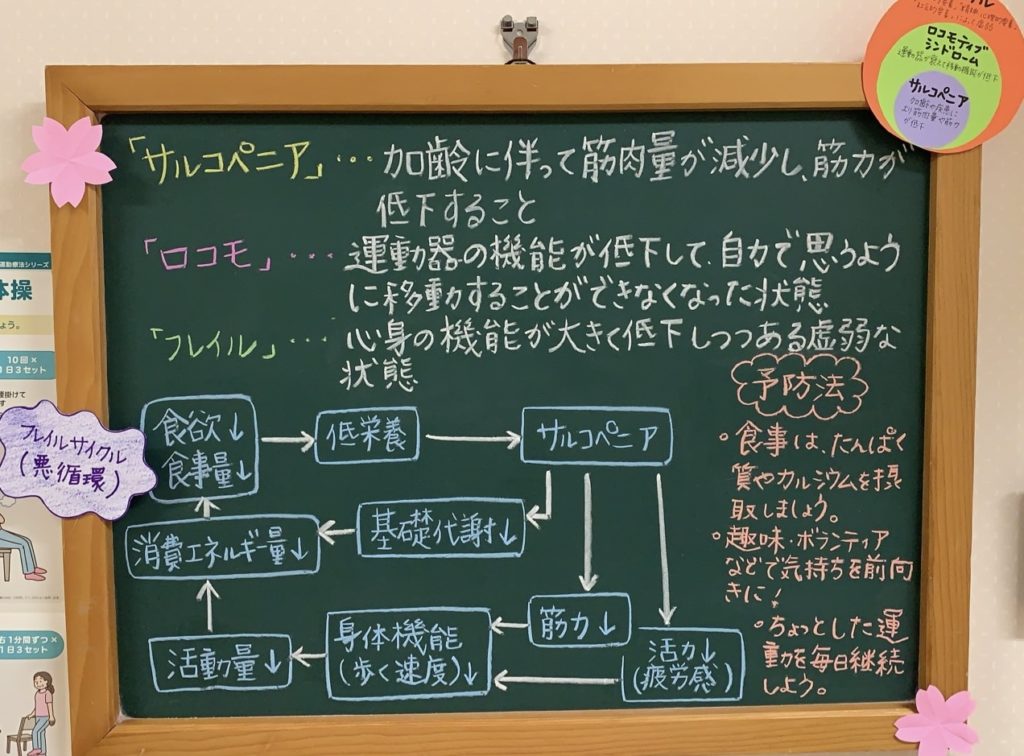 「サルコペニア」・・・加齢に伴って筋肉量が減少し、筋力が
低下すること
「ロコモ」・・・運動器の機能が低下して、自力で思うよう
に移動することができなくなった状態
「フレイル」・・・心身の機能が大きく低下しつつある虚弱な
状態
フレイルサイクル
(悪循環)
食欲↓
食事量↓
低栄養
サルコペニア
基礎代謝↓
消費エネルギー量↓
筋力↓
活力↓
(疲労感)
身体機能
(歩く速度)↓
活動量↓
予防法
・食事は、たんぱく
質やカルシウムを摂
取しましょう。
・趣味・ボランティア
などで気持ちを前向
きに!
・ちょっとした運
動を毎日継続
しよう。
ロコモティブ
シンドローム
運動器が衰えて移動機能が低下
サルコペニア
加齢や疾患に
より筋肉量や筋力
が低下
運動療法シリーズ
体操
ょう。
10回×
1日3セット
腰掛けて
右1分間ずつ×
1日3セット